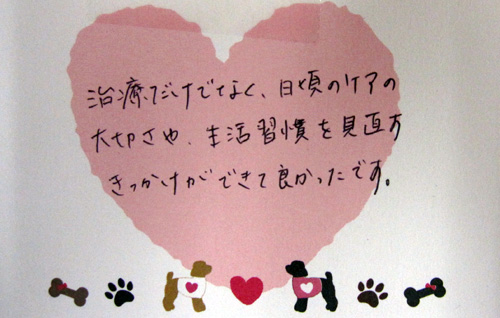 治療だけでなく、日頃のケアの
大切さや、生活習慣を見直す
きっかけができて良かったです。